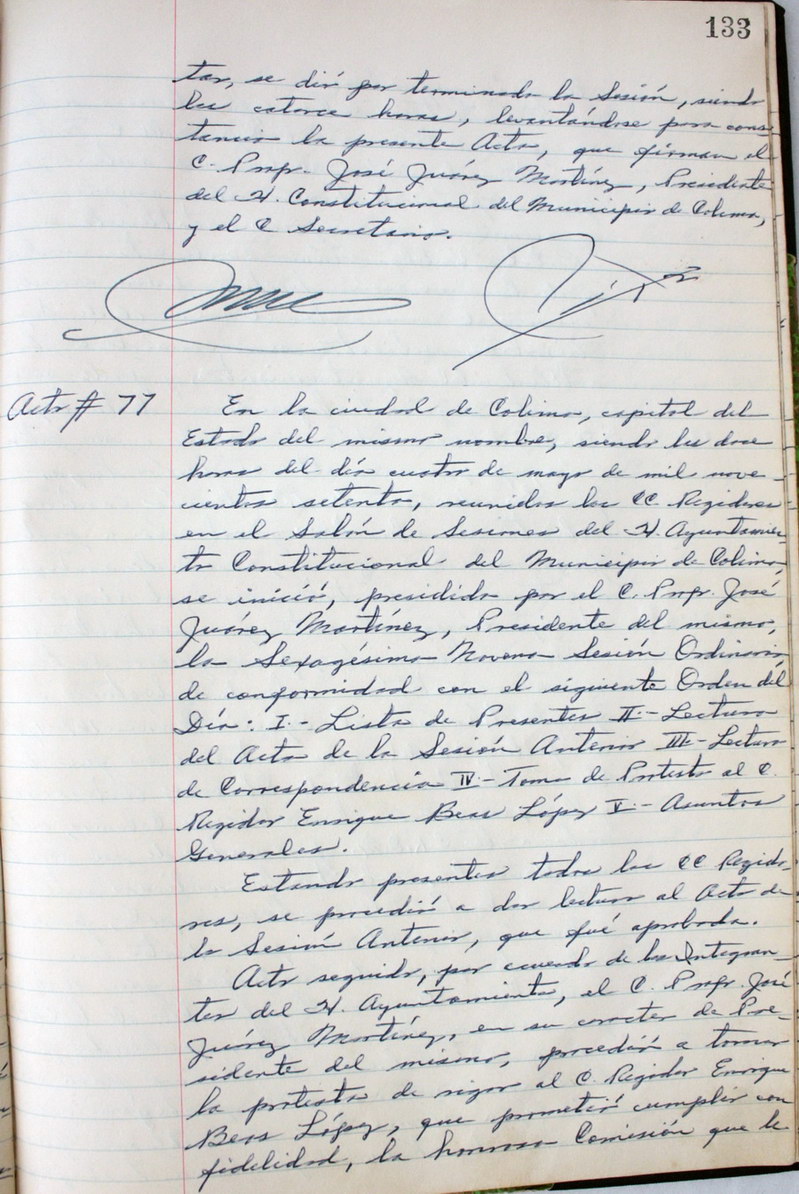 133
tar, se dió por terminada la Sesión, siendo
las catorce horas, levantándose para cons-
tancia la presente Acta, que firman el
C. Profr. José Juárez Martínez, Presidente
del H. Constitucional del Municipio de Colima,
y el C Secretario.
Acta # 77
En la ciudad de Colima, capital del
Estado del mismo nombre, siendo las doce
horas del día cuatro de mayo de mil nove-
cientos setenta, reunidos los CC Regidores
en el Salón de Sesiones del H. Ayuntamien-
to Constitucional del Municipio de Colima,
se inició, presidida por el C. Profr. José
Juárez Martínez, Presidente del mismo,
la Sexagésima Novena Sesión Ordinaria
de conformidad con el siguiente Orden del
Día: I.- Lista de Presentes II.- Lectura
del Acta de la Sesión Anterior III.- Lectura
de Correspondencia IV.- Toma de Protesta al C.
Regidor Enrique Beas López V.- Asuntos
Generales.
Estando presentes todos los CC Regido-
res, se procedió a dar lectura al Acta de
la Sesión Anterior, que fué aprobada.
Acto seguido, por acuerdo de los Integran-
tes del H. Ayuntamiento, el C. Profr. José
Juárez Martínez, en su caracter de Pre-
sidente del mismo, procedió a tomar
la protesta de rigor al C. Regidor Enrique
Beas López, que prometió cumplir con
fidelidad, la honrosa Comisión que le